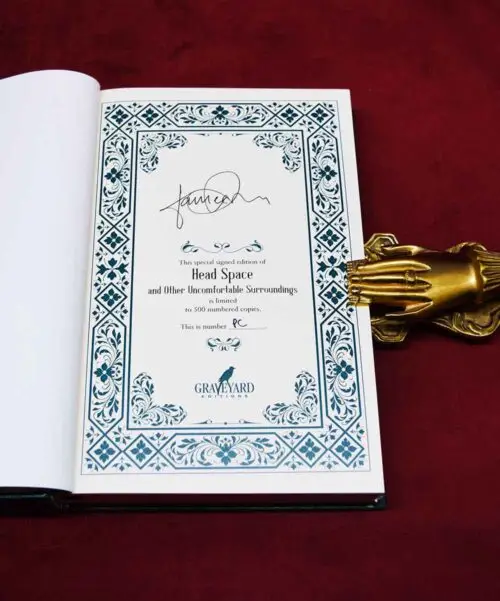 This special signed edition of
Head Space
and Other Uncomfortable Surroundings
is limited
to 300 numbered copies.
This is number PC
GRAVEYARD
EDITIONS